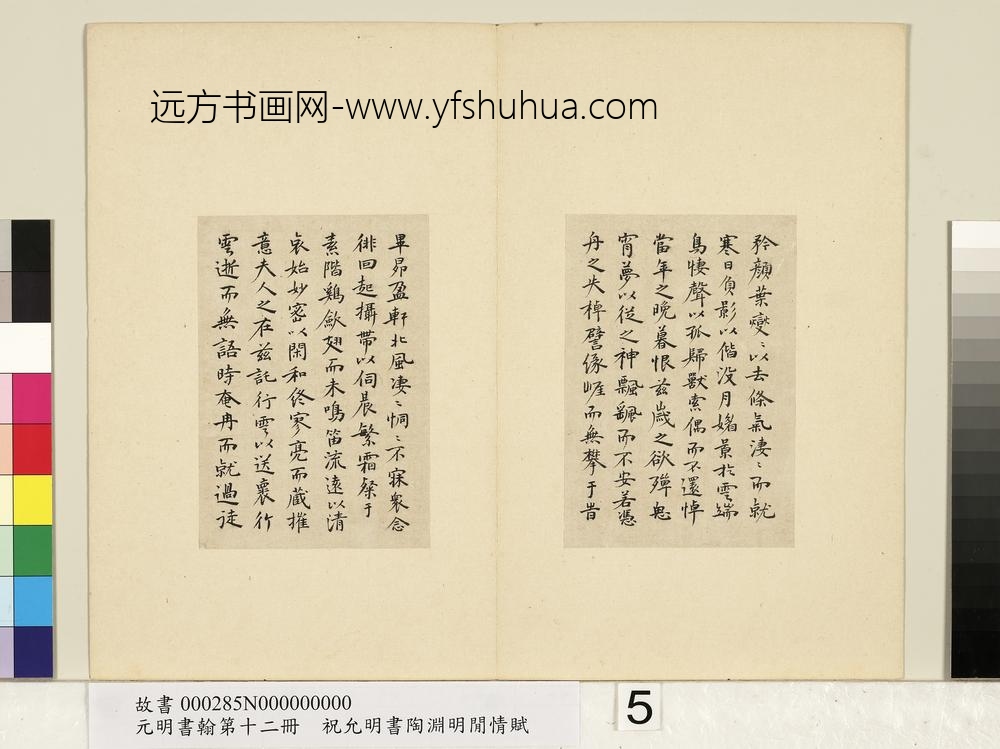 远方书画网-www.yfshuhua.com
矜顔葉燮〻以去條氣淒〻而就
寒日負影以偕没月媚景於雲端
鳥悽聲以孤歸獸索偶而不還悼
當年之晚暮恨兹歲之欲殫思
宵夢以從之神飄颻而不安若憑
舟之失棹譬缘崕而無攀于旹
畢昴盈軒北風淒〻恫〻不寐衆念
徘回起攝帶以伺晨繁霜粲于
素階鷄歛翅而未鳴笛流遠以清
哀始妙密以閑和终寥亮而藏摧
意夫人之在兹託行雲以送褱行
雲逝而無語時奄冉而就過徒
故書 000285N000000000
元明書翰第十二冊 祝允明書陶淵明閒情賦
5